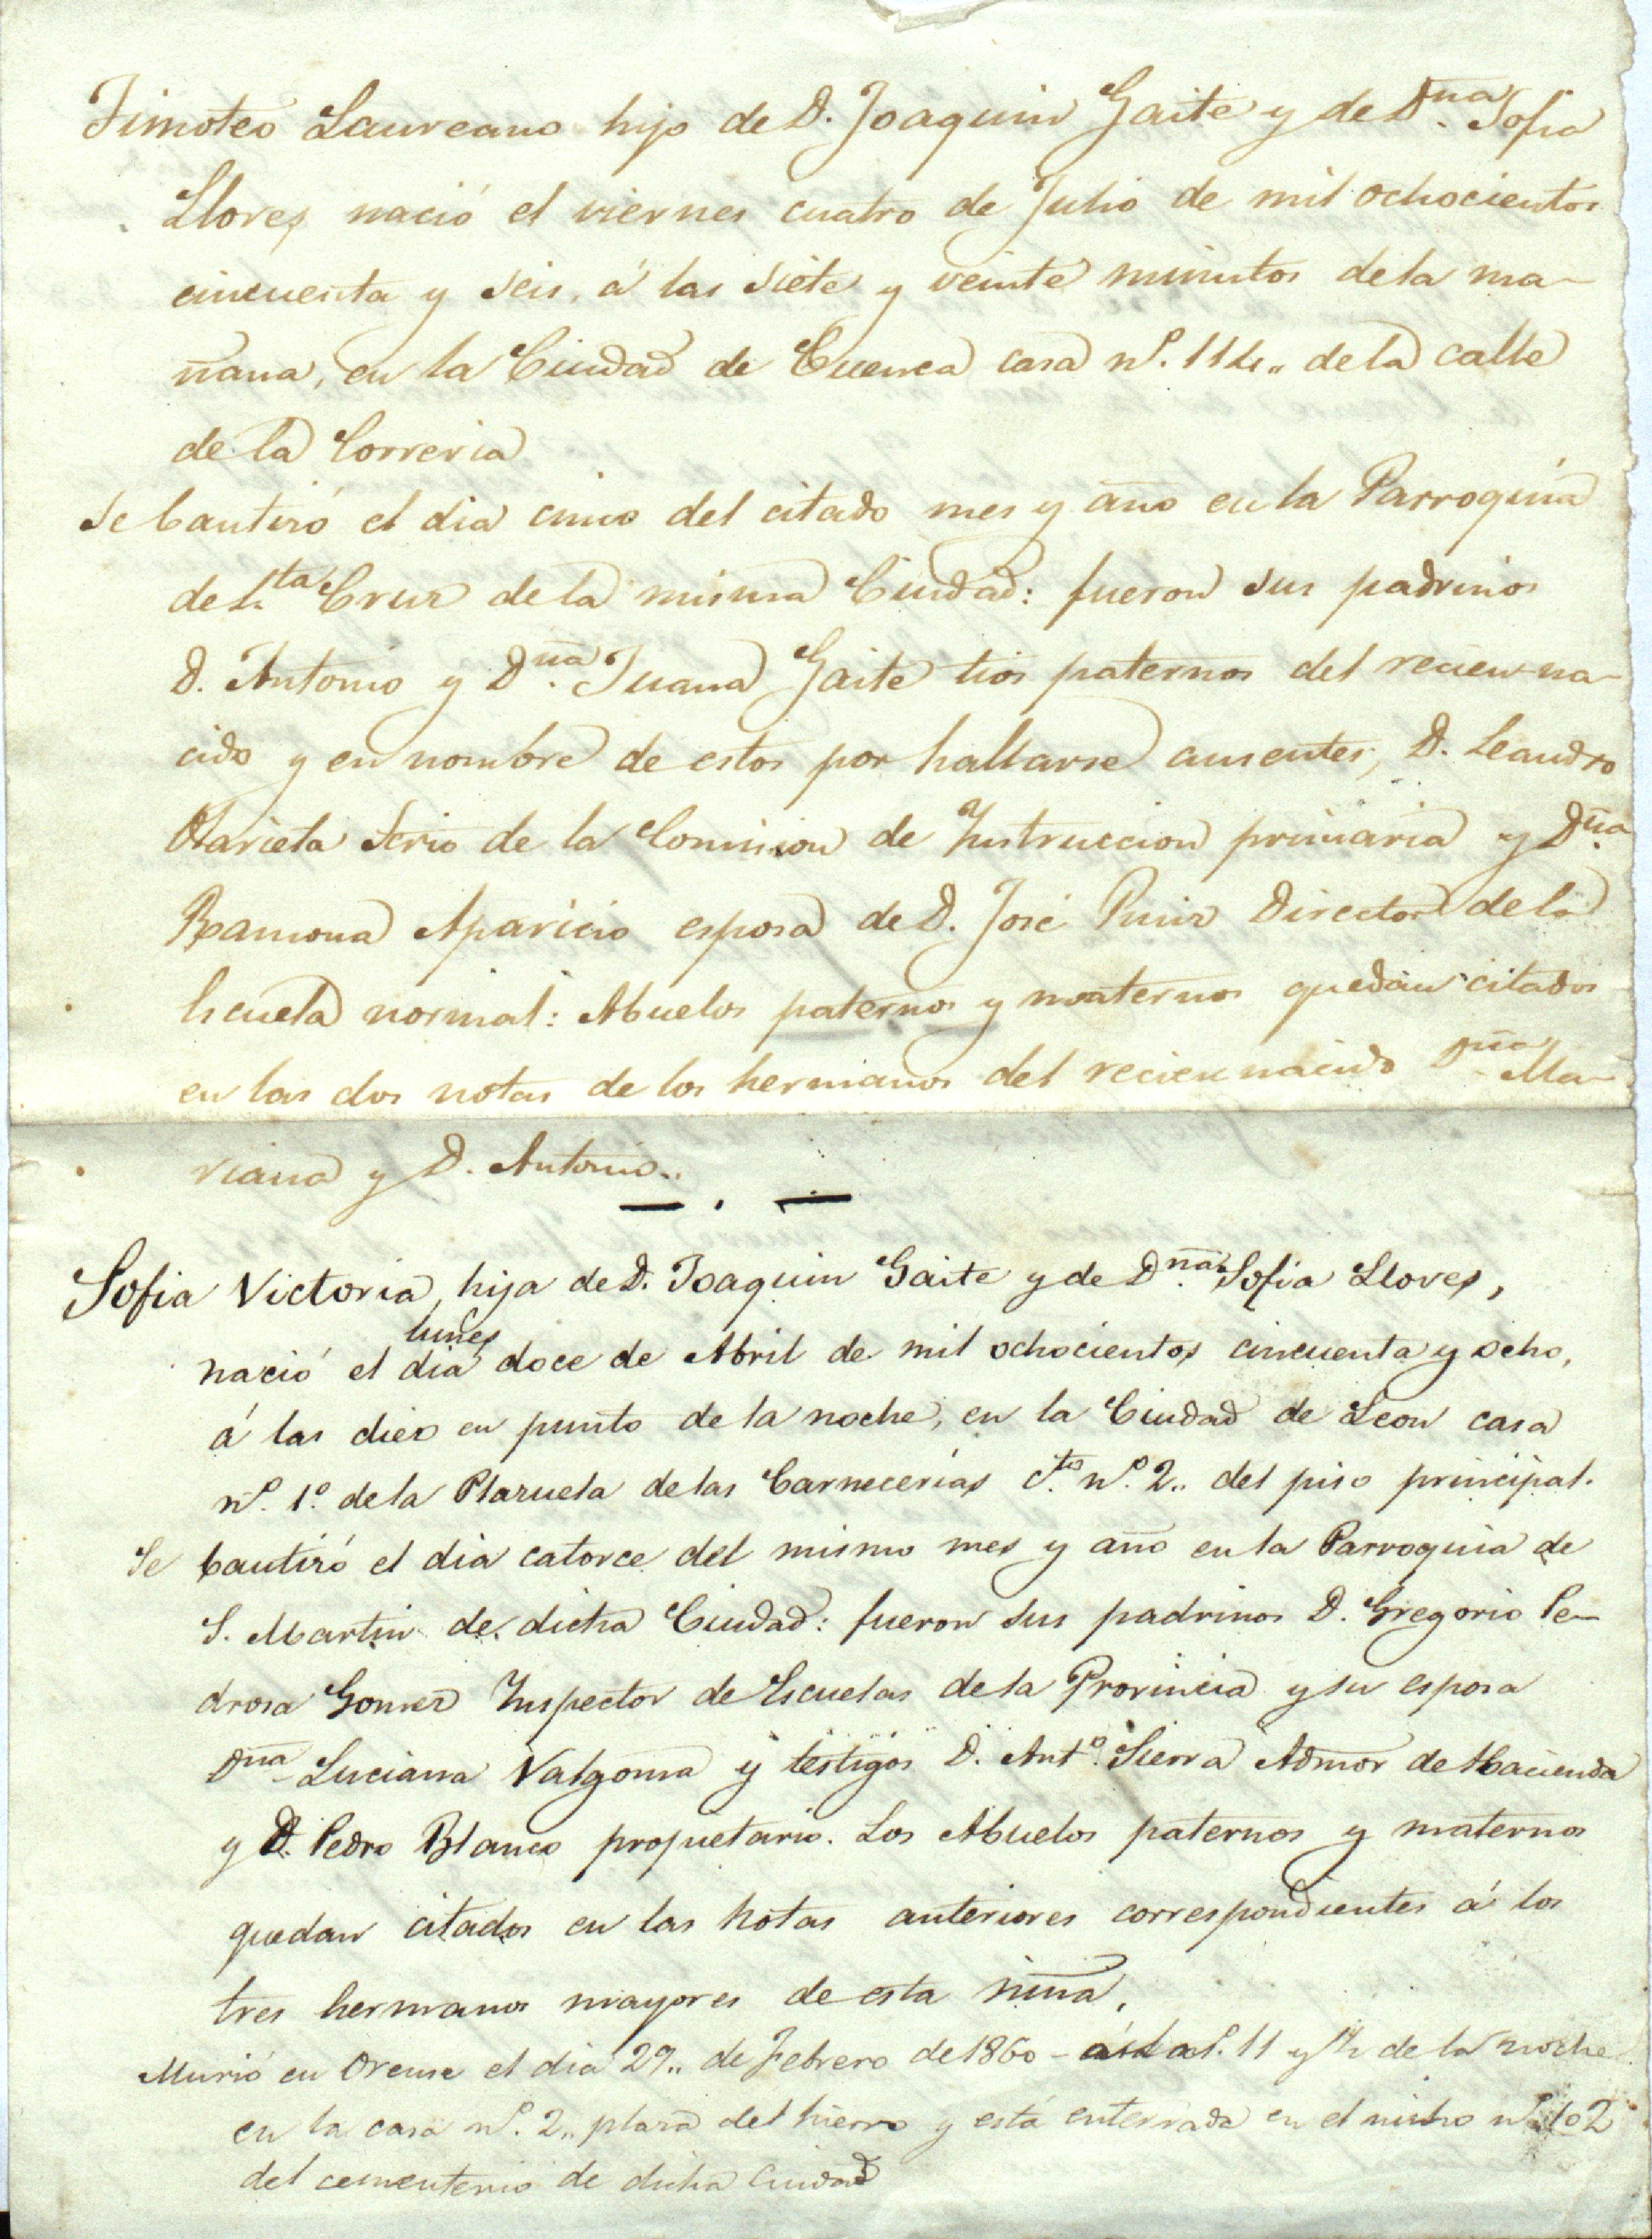 Timoteo Laureano hijo de D. Joaquin Gaite y de Dña. Sofia
Lloves nació el viernes cuatro de Julio de mil ochocientos
cincuenta y seis, á las siete y veinte minutos de la ma-
ñana, en la Ciudad de Cuenca casa nº. 114,, de la calle
de la Correria
Se bautizó el dia cinco del citado mes y año en la Parroquia
de Sta. Cruz de la misma Ciudad: fueron sus padrinos
D. Antonio y Dña. Juana Gaite tios paternos del recien-na-
cido y en nombre de estos por hallarse ausentes, D. Leandro
Olarieta Srio de la Comision de Instruccion primaria y Dña.
Ramona Aparicio esposa de D. José Director de la
Escuela normal: Abuelos paternos y maternos quedan citados
en las dos notas de los hermanos del recien nacido Dña. Ma-
riana y D. Antonio..
— . —
Sofia Victoria, hija de D. Joaquin Gaite y de Dña. Sofia Lloves,
lunes
nació el dia doce de Abril de mil ochocientos cincuenta y ocho,
á las diez en punto de la noche, en la Ciudad de Leon casa
nº. 1º. de la Plazuela de las Carnecerias Cto. nº. 2,, del piso principal.
Se bautizó el dia catorce del mismo mes y año en la Parroquia de
S. Martin de dicha Ciudad: fueron sus padrinos D. Gregorio Pe-
drosa Gomez Inspector de Escuelas de la Provincia y su esposa
Dña. Luciana Valgoma y testigos D. Antº. Sierra Admor de Hacienda
y D. Pedro Blanco propietario. Los Abuelos paternos y maternos
quedan citados en las notas anteriores correspondientes á los
tres hermanos mayores de esta niña.
Murió en Orense el dia 29,, de Febrero de 1860 - á las 11 y ½ de la noche
en la casa nº. 2,, plaza del hierro y está enterrada en el nicho nº. 102
del cementerio de dicha Ciudad